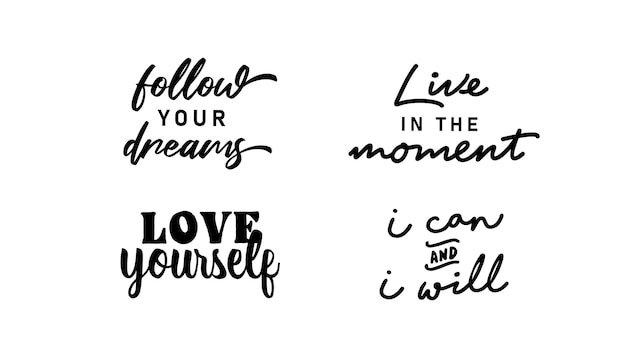 follow
YOUR
dreams
Live
IN THE
moment
LOVE
yourself
i can
AND
i will